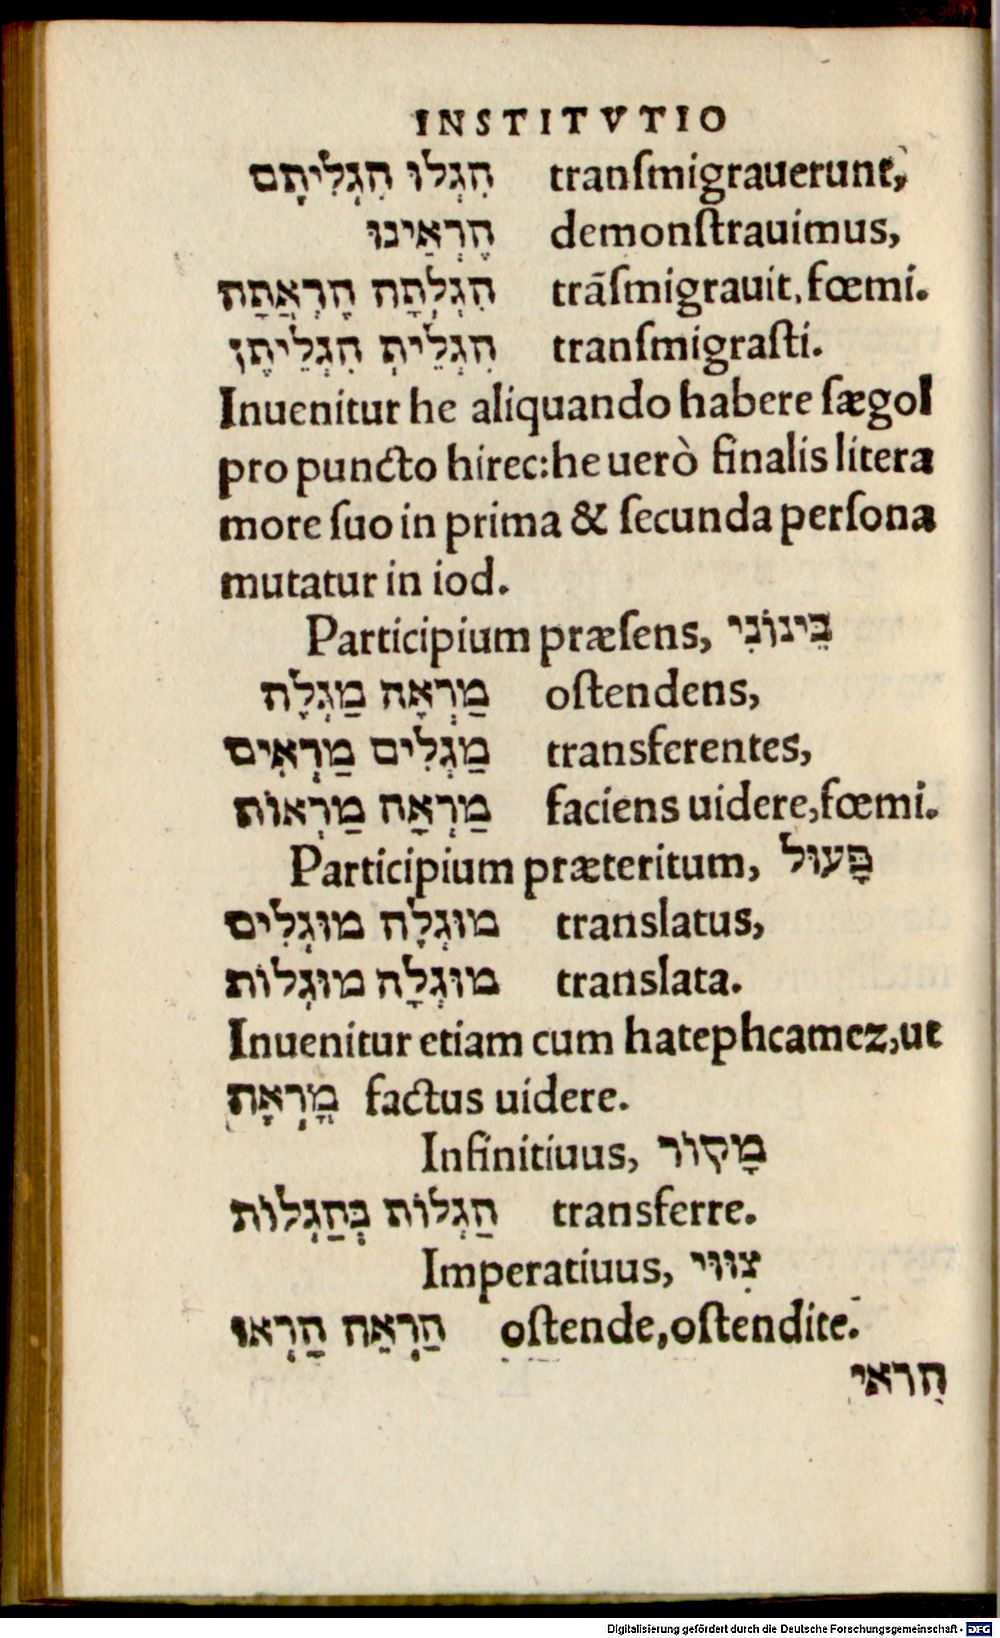 INSTITVTIO
הִגְלוּ הִגְלִיתֶם tranſmigrauerunt,
הֶרְאֵינוּ demonſtrauimus,
הִגְלְתָה הֶרְאֲתָה trãſmigrauit, fœmi.
הִגְלֵית הִגְלֵיתֶן tranſmigraſti.
Inuenitur he aliquando habere ſægol
pro puncto hirec: he uerò finalis litera
more ſuo in prima & ſecunda perſona
mutatur in iod.
Participium præſens, בֵּינוֹנִי
מַרְאָה מַגְלָה oſtendens,
מַגְלִים מַרְאִים transferentes,
מַרְאָה מַרְאוֹת faciens uidere, fœmi.
Participium præteritum, פָּעוּל
מוּגְלָה מוּגְלִים translatus,
מוּגְלָה מוּגְלוֹת translata.
Inuenitur etiam cum hatephcamez, ut
מֳרְאָת factus uidere.
Infinitiuus, מָקוֹר
הַגְלוֹת בְּהַגְלוֹת transferre.
Imperatiuus, צִוּוּי
הַרְאֵה הַרְאוּ oſtende, oſtendite.
הראי
Digitalisierung gefördert durch die Deutsche Forschungsgemeinschaft - DFG